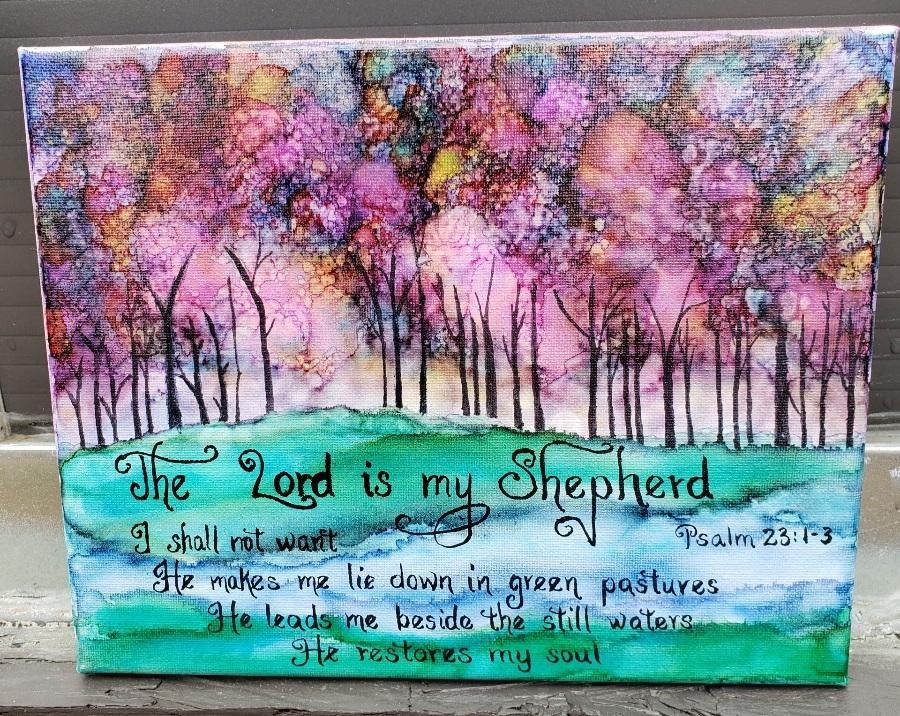 The Lord is my Shepherd
I shall not want
Psalm 23:1-3
He makes me lie down in green pastures
He leads me beside the still waters
He restores my soul